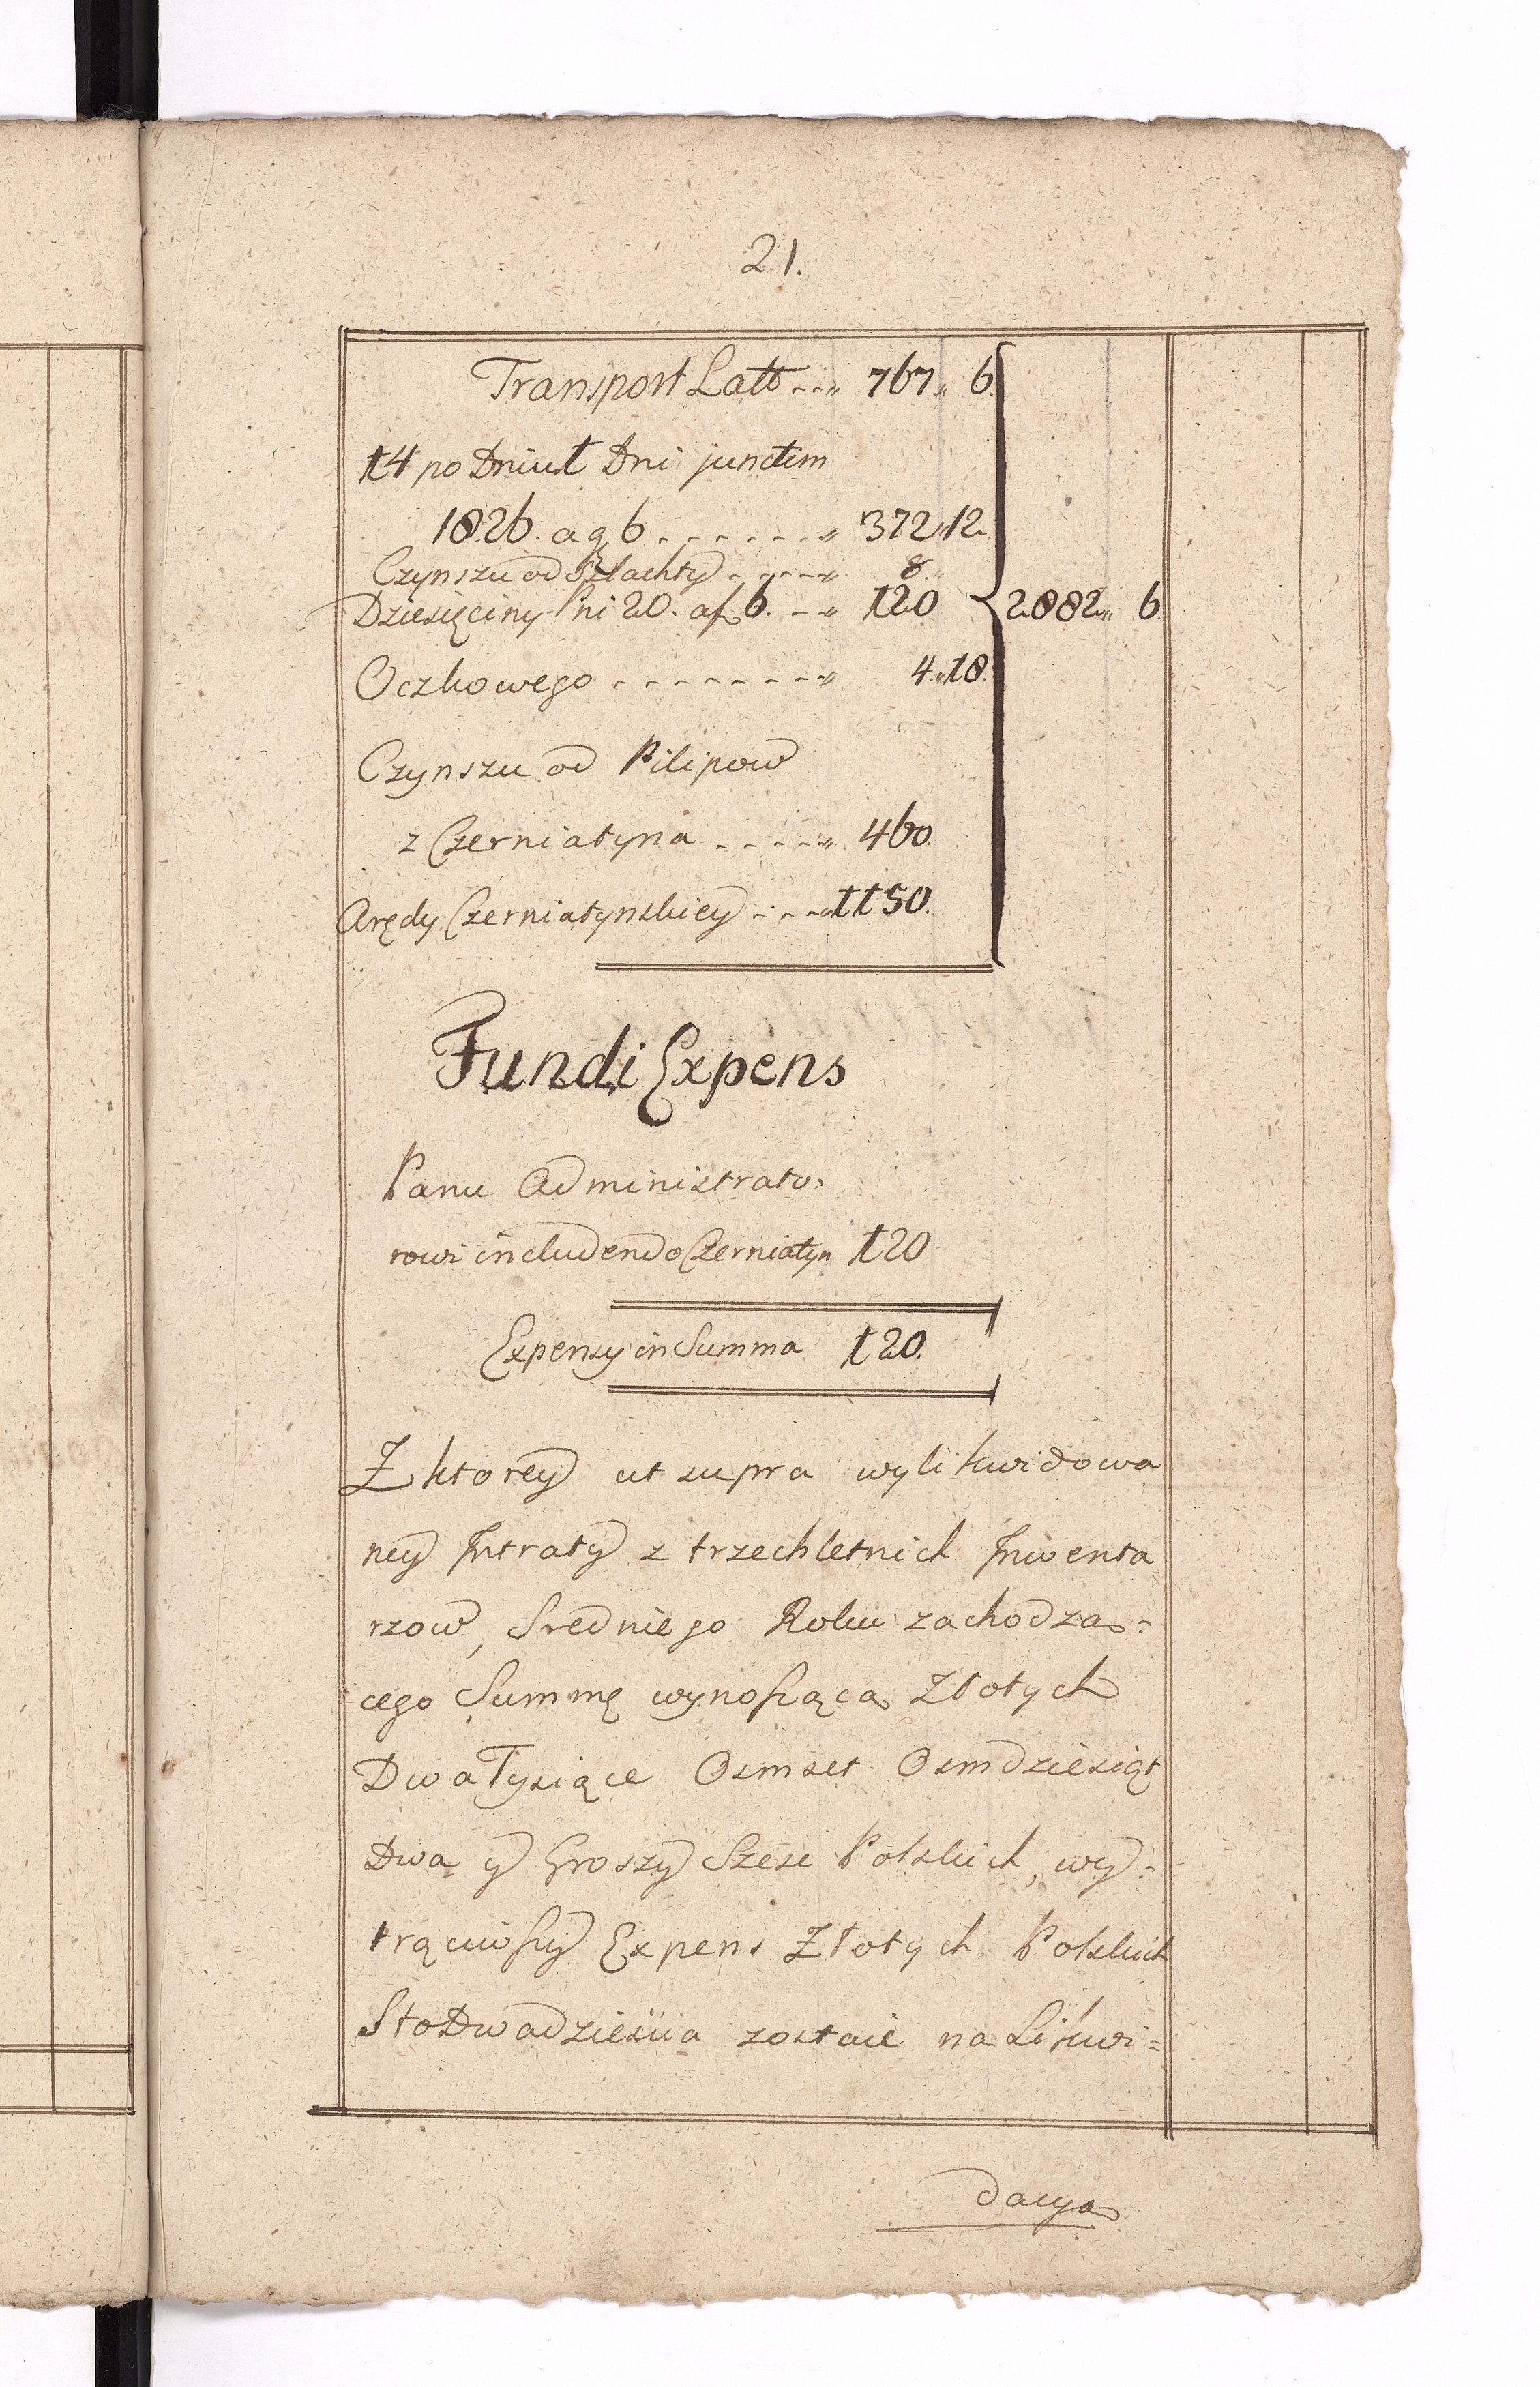 21.
Transport Latt - - „ 767 „ 6.
14 po Dniu 1 Dni junctim
1826. a g 6. - - - - - - „ 372 „ 12.
Czynszu od Szlachty - - - - „ 8. „
Dziesięciny Pni 20. a f 6. - - „ 120
2882 „ 6
Oczkowego - - - - - - - - „ 4. „ 18.
Czynszu od Pilipow
z Czerniatyna - - - - „ 460.
Arędy Czerniatynskiey - - - „ 1150.
Fundi Expens
Panu Administrato:
rowi includendo Czerniatyn 120
Expensy in Summa 120.
Z ktorey ut supra wylikwidowa
ney Intraty z trzechletnich Inwenta
rzow, Sredniego Roku zachodzą:
cego Summę wynosząca Złotych
Dwa Tysiące Osmset Osmdziesiąt
Dwa y Groszy Szesc Polskich, wy:
trąciwszy Expens Złotych Polskich
Sto Dwadziescia zostaie na Likwi=
dacyą